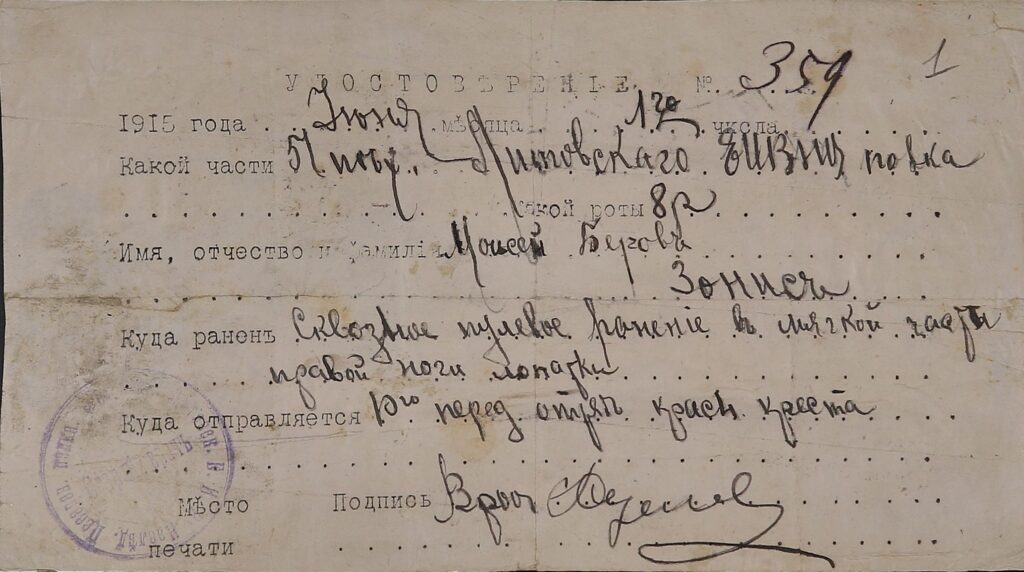 УДОСТОВѢРЕНІЕ № 359 1
1915 года Іюня мѣсяца 17го числа
Какой части 51 пѣх. Литовскаго ЕИВНЦ полка
Какой роты 8р
Имя, отчество и фамилія Моисей Беровъ
Зонисъ
Куда раненъ Сквозное пулевое раненіе въ мягкой части
правой ноги лопатки
Куда отправляется перед. отряд красн. креста
Мѣсто Подпись Врач
печати